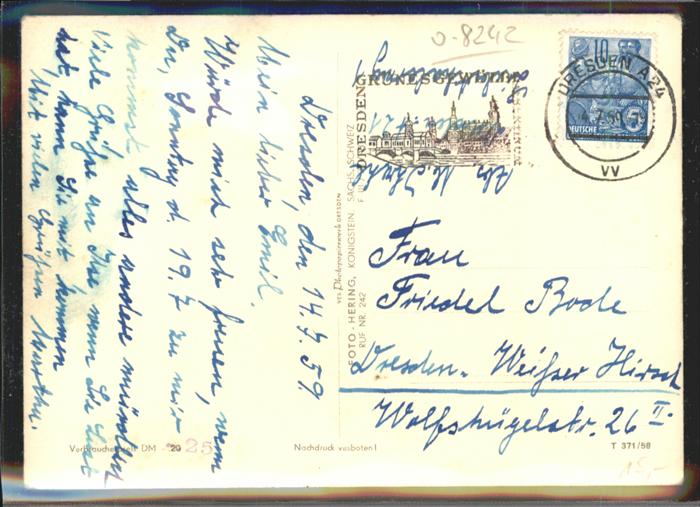 Dresden, den 14.7.59
Mein lieber Emil.
Würde mich sehr freuen, wenn
Du, Sonntag d. 19.7 zu mir
kommst alles andere mündlich
Viele Grüße an Ilse wenn Sie Lust
hat kann Sie mit kommen
Mit vielen Grüßen Martha.
Verbraucherpreis DM -.20 25
Nachdruck verboten!
VEB Photopapierwerk DRESDEN
FOTO-HERING, KÖNIGSTEIN, SÄCHS. SCHWEIZ
RUF NR. 242
0-8242
GRÜNES GEWÖLBE
DRESDEN
10
DEUTSCHE
DRESDEN A24
14.7.59
VV
Frau
Friedel Bode
Dresden-Weißer Hirsch
Wolfshügelstr. 26 II.
T 371/58
15,-